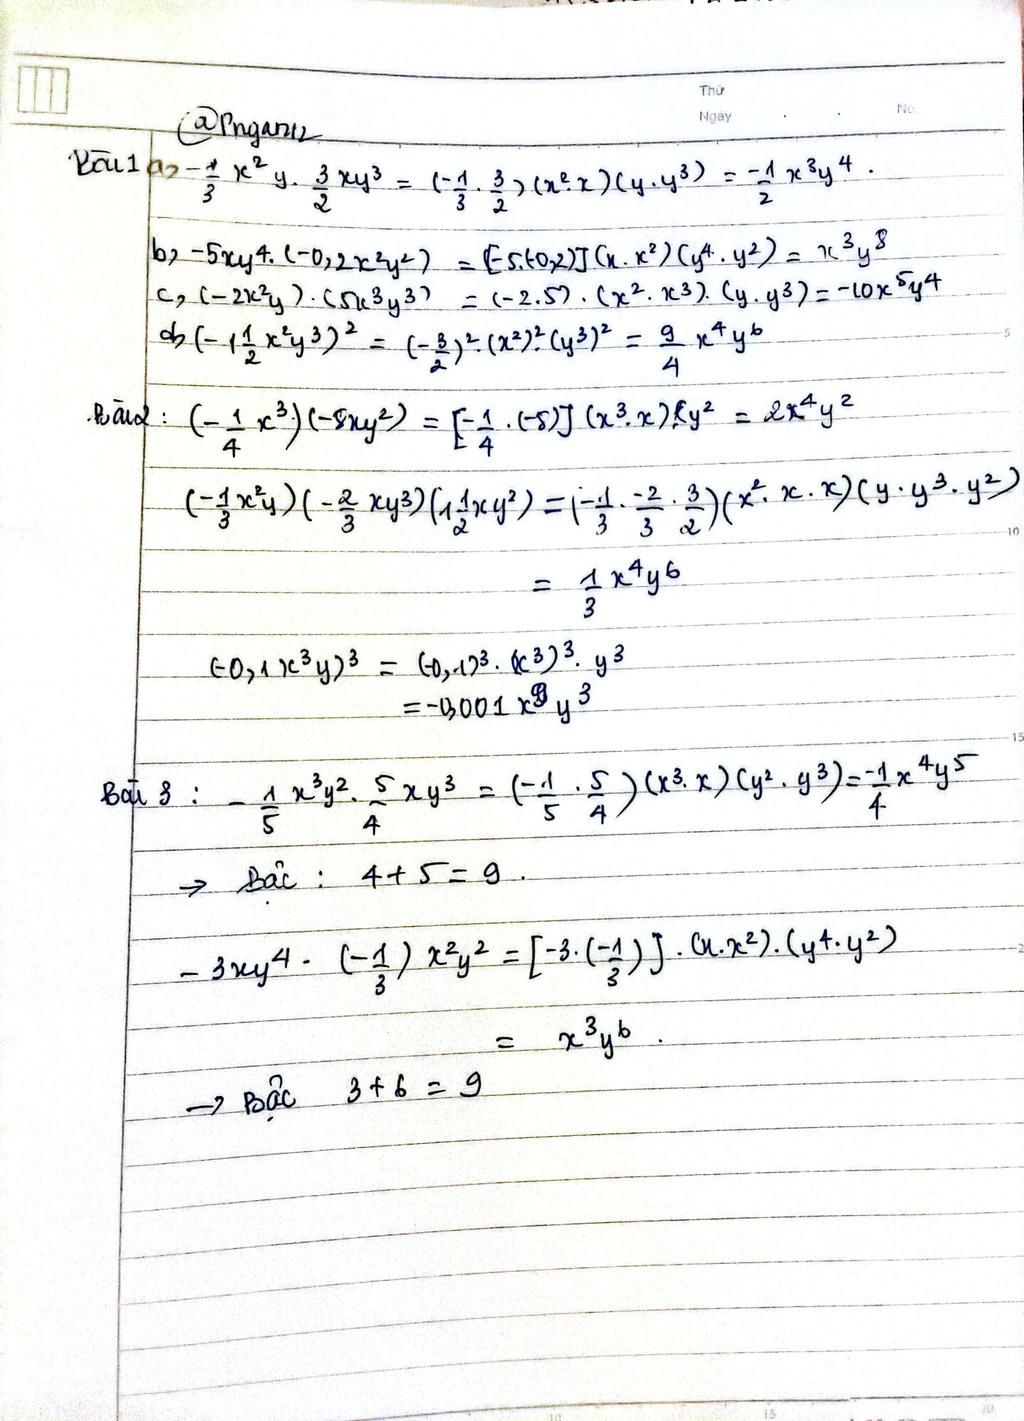 Thứ
Ngày No.
@Pngan212
Bài 1 a, -1/3 x² y . 3/2 xy³ = (-1/3 . 3/2) (x².x) (y.y³) = -1/2 x³y⁴.
b, -5xy⁴. (-0,2x²y²) = [-5.(-0,2)] (x.x²) (y⁴.y²) = x³y⁸
c, (-2x²y) . (5x³y³) = (-2.5) . (x².x³). (y.y³) = -10x⁵y⁴
d, (-1 1/2 x²y³)² = (-3/2)².(x²)².(y³)² = 9/4 x⁴y⁶
Bài 2 : (-1/4 x³) (-8xy²) = [-1/4 . (-8)] (x³.x) y² = 2x⁴y²
(-1/3 x²y) (-2/3 xy³) (1 1/2 xy²) = (-1/3 . -2/3 . 3/2) (x².x.x) (y.y³.y²)
= 1/3 x⁴y⁶
(-0,1x³y)³ = (-0,1)³. (x³)³. y³
= -0,001 x⁹y³
Bài 3 : -1/5 x³y². 5/4 xy³ = (-1/5 . 5/4) (x³.x) (y².y³) = -1/4 x⁴y⁵
→ Bậc : 4+5=9.
-3xy⁴ . (-1/3) x²y² = [-3.(-1/3)] . (x.x²).(y⁴.y²)
= x³y⁶ .
→ Bậc 3+6=9
5
10
15
2
10 15 20